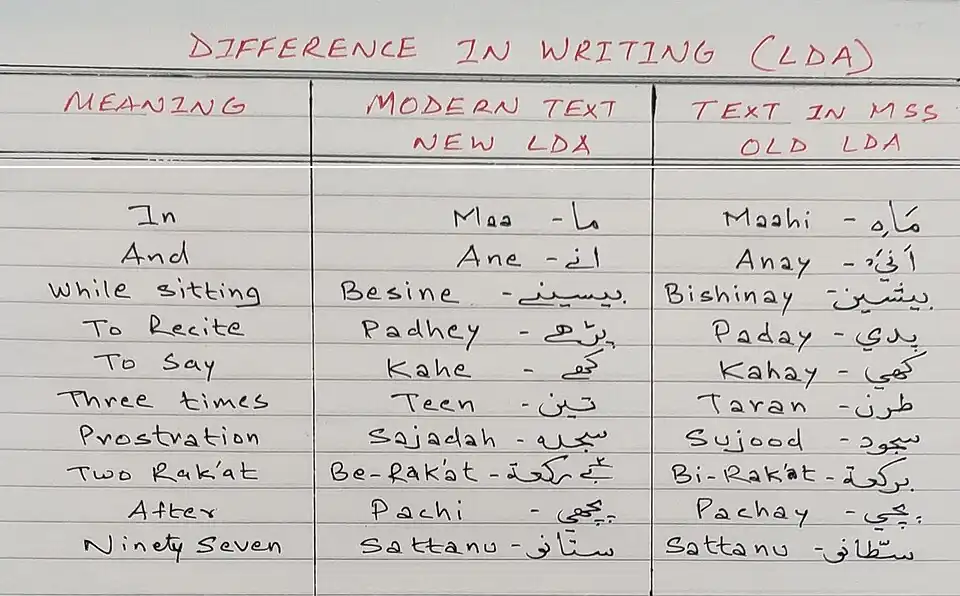 DIFFERENCE IN WRITING (LDA)
MEANING MODERN TEXT TEXT IN MSS
NEW LDA OLD LDA
In Maa - ما Maahi - مَاهِ
And Ane - انے Anay - اَنَيْ
While sitting Besine - بيسينے Bishinay - بيشين
To Recite Padhey - پڑھے Paday - پدي
To Say Kahe - کہے Kahay - کهي
Three times Teen - تين Taran - طرن
Prostration Sajadah - سجده Sujood - سجود
Two Rak'at Be-Rak'at - بے ركعة Bi-Rak'at - بركعة
After Pachi - پچھي Pachay - پچي
Ninety Seven Sattanu - ستانو Sattanu - سطّانو